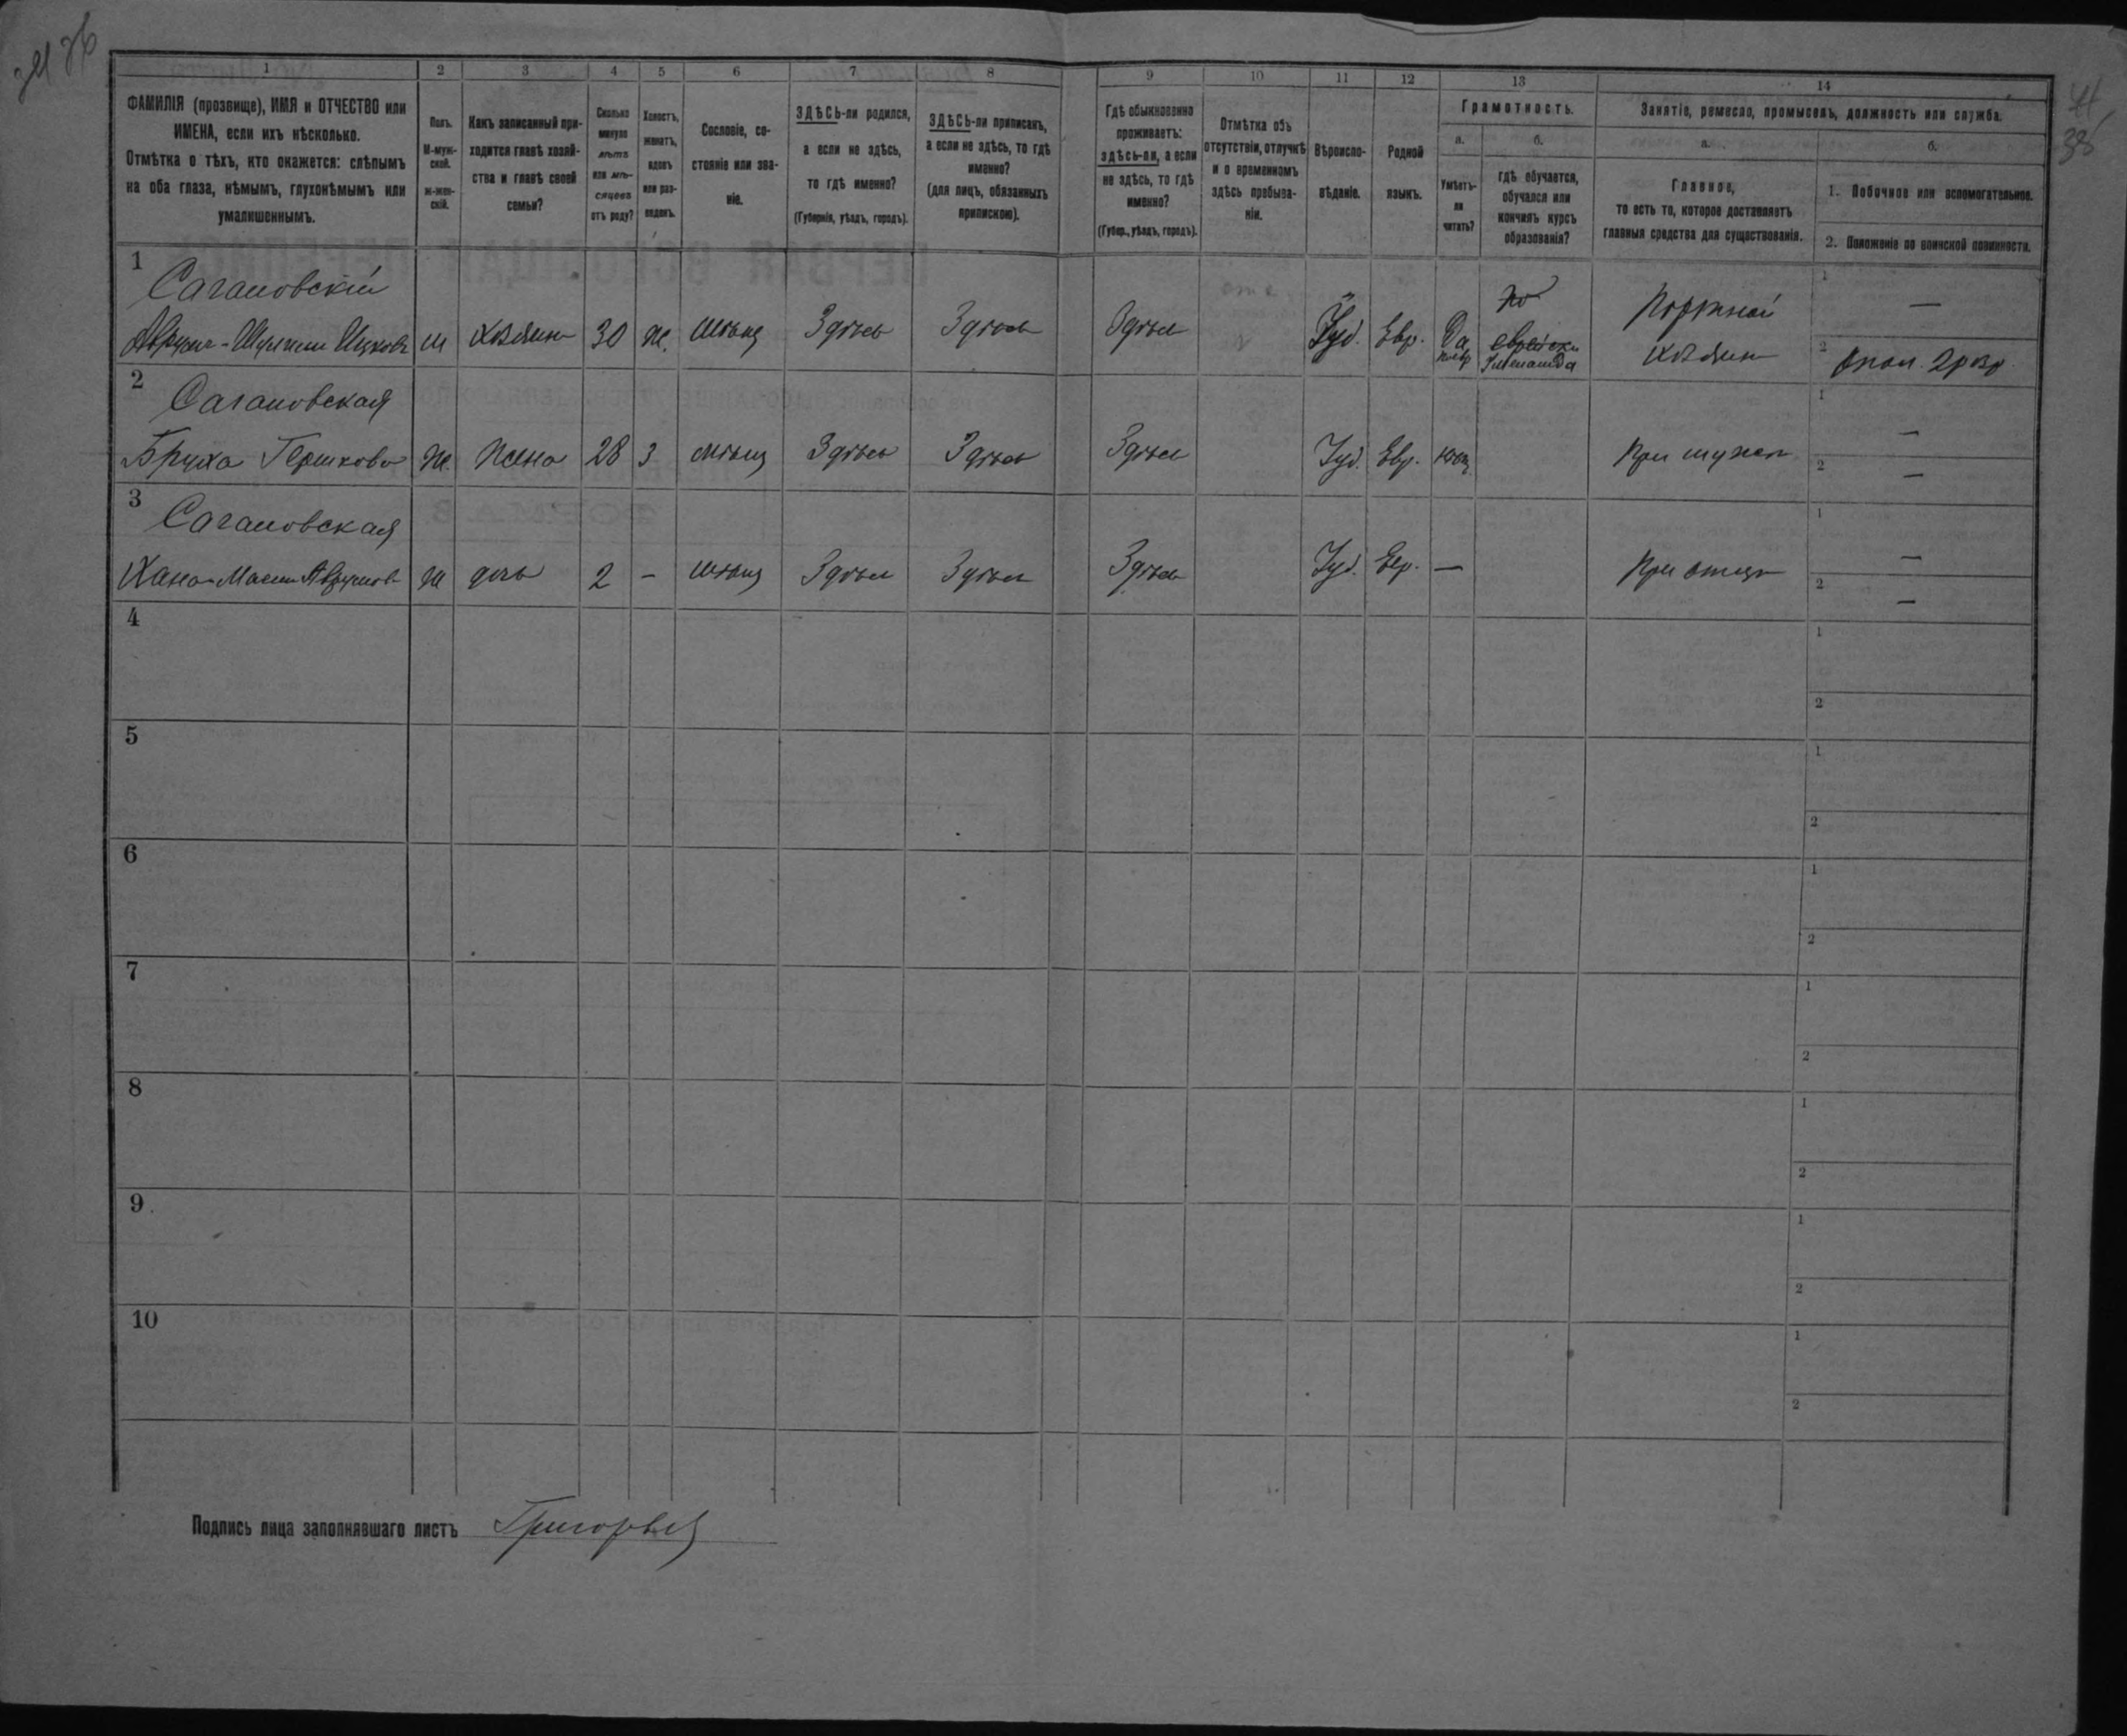 1 2 3 4 5 6 7 8 9 10 11 12 13 14
ФАМИЛІЯ (прозвище), ИМЯ и ОТЧЕСТВО или
ИМЕНА, если ихъ нѣсколько.
Отмѣтка о тѣхъ, кто окажется: слѣпымъ
на оба глаза, нѣмымъ, глухонѣмымъ или
умалишеннымъ.
Полъ.
М-муж-
ской.
ж-жен-
скій.
Какъ записанный при-
ходится главѣ хозяй-
ства и главѣ своей
семьи?
Сколько
минуло
лѣтъ
или мѣ-
сяцевъ
отъ роду?
Холостъ,
женатъ,
вдовъ
или раз-
веденъ.
Сословіе, со-
стояніе или зва-
ніе.
ЗДѢСЬ-ли родился,
а если не здѣсь,
то гдѣ именно?
(Губернія, уѣздъ, городъ).
ЗДѢСЬ-ли приписанъ,
а если не здѣсь, то гдѣ
именно?
(для лицъ, обязанныхъ
припискою).
Гдѣ обыкновенно
проживаетъ:
здѣсь-ли, а если
не здѣсь, то гдѣ
именно?
(Губер., уѣздъ, городъ).
Отмѣтка объ
отсутствіи, отлучкѣ
и о временномъ
здѣсь пребыва-
ніи.
Вѣроиспо-
вѣданіе.
Родной
языкъ.
Грамотность.
а.
Умѣетъ-
ли
читать?
б.
гдѣ обучается,
обучался или
кончилъ курсъ
образованія?
Занятіе, ремесло, промыселъ, должность или служба.
а.
Главное,
то есть то, которое доставляетъ
главныя средства для существованія.
б.
1. Побочное или вспомогательное.
2. Положеніе по воинской повинности.
1
Сагановскій
Аврумъ-Шулимъ Ицковъ м хозяинъ 30 ж. мѣщ Здѣсь Здѣсь Здѣсь Іуд. Евр. Да по евр
по
еврейски
Портной
хозяинъ
1 —
2 Опол. 2 разр
2
Сагановская
Бруха Гершкова ж. жена 28 з мѣщ Здѣсь Здѣсь Здѣсь Іуд. Евр. При мужѣ
1 —
2 —
3
Сагановская
Хана-Масья Аврумов ж дочь 2 - мѣщ Здѣсь Здѣсь Здѣсь Іуд. Евр. — При отцѣ
1 —
2 —
4
1
2
5
1
2
6
1
2
7
1
2
8
1
2
9
1
2
10
1
2
Подпись лица заполнявшаго листъ Григорьев